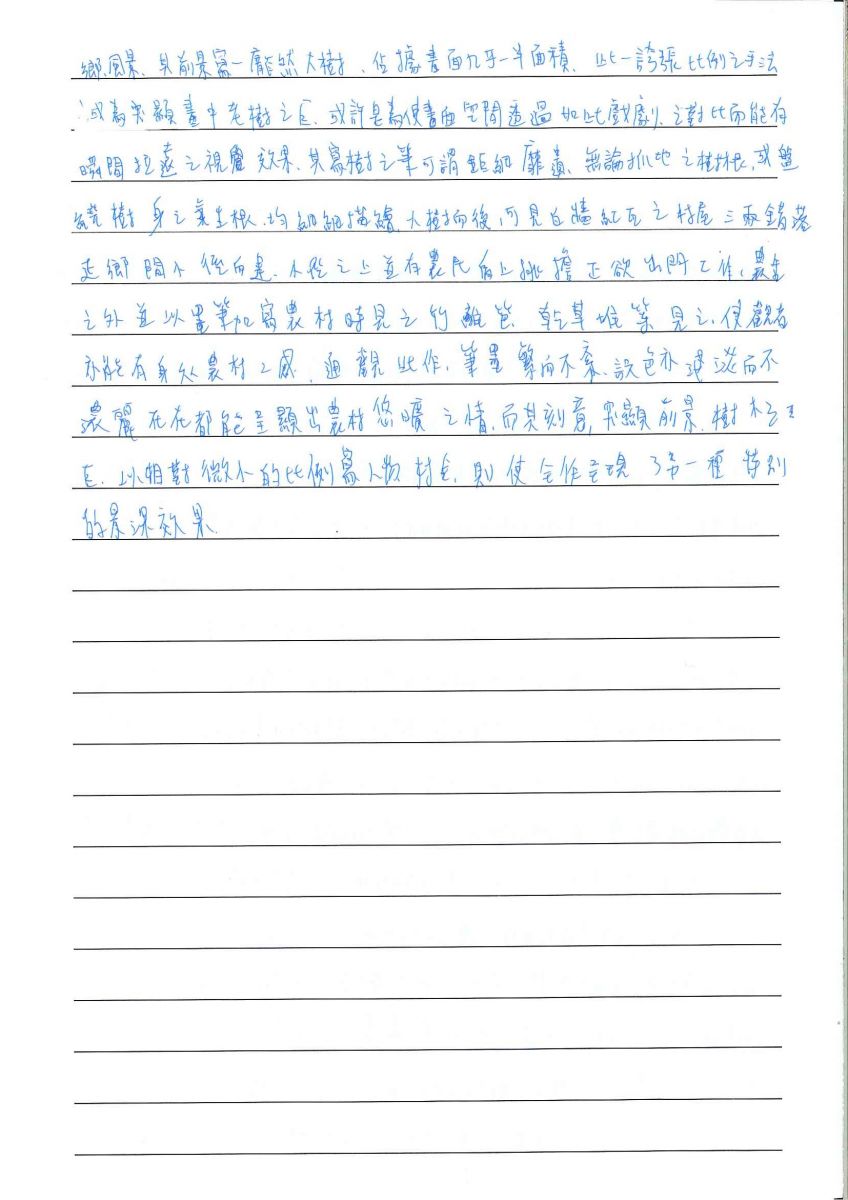 鄉風景、其前景寫一龐然大樹、佔據畫面幾乎一半面積、此一誇張比例之手法
或為突顯畫中老樹之巨、或許是為使畫面空間透過如此戲劇之對比而能有
瞬間拉遠之視覺效果、其寫樹之筆可謂鉅細靡遺、無論抓地之樹根、或盤
繞樹身之氣生根、均細細描繪、大樹而後、可見白牆紅瓦之村屋三兩錯落
走鄉間小徑而建、小徑之上並有農民肩上挑擔正欲出門工作、農舍
之外並以墨筆加寫農村時見之竹離笆、乾草堆等景之、使觀者
亦能有身於農村之感、通觀此作、筆墨繁而不紊、設色亦淺淡而不
濃麗在在都能呈顯出農村悠曠之情、而其刻意突顯前景、樹木之
巨、以相對微小的比例寫人物村舍、則使全作呈現了另一種特別
的景深效果